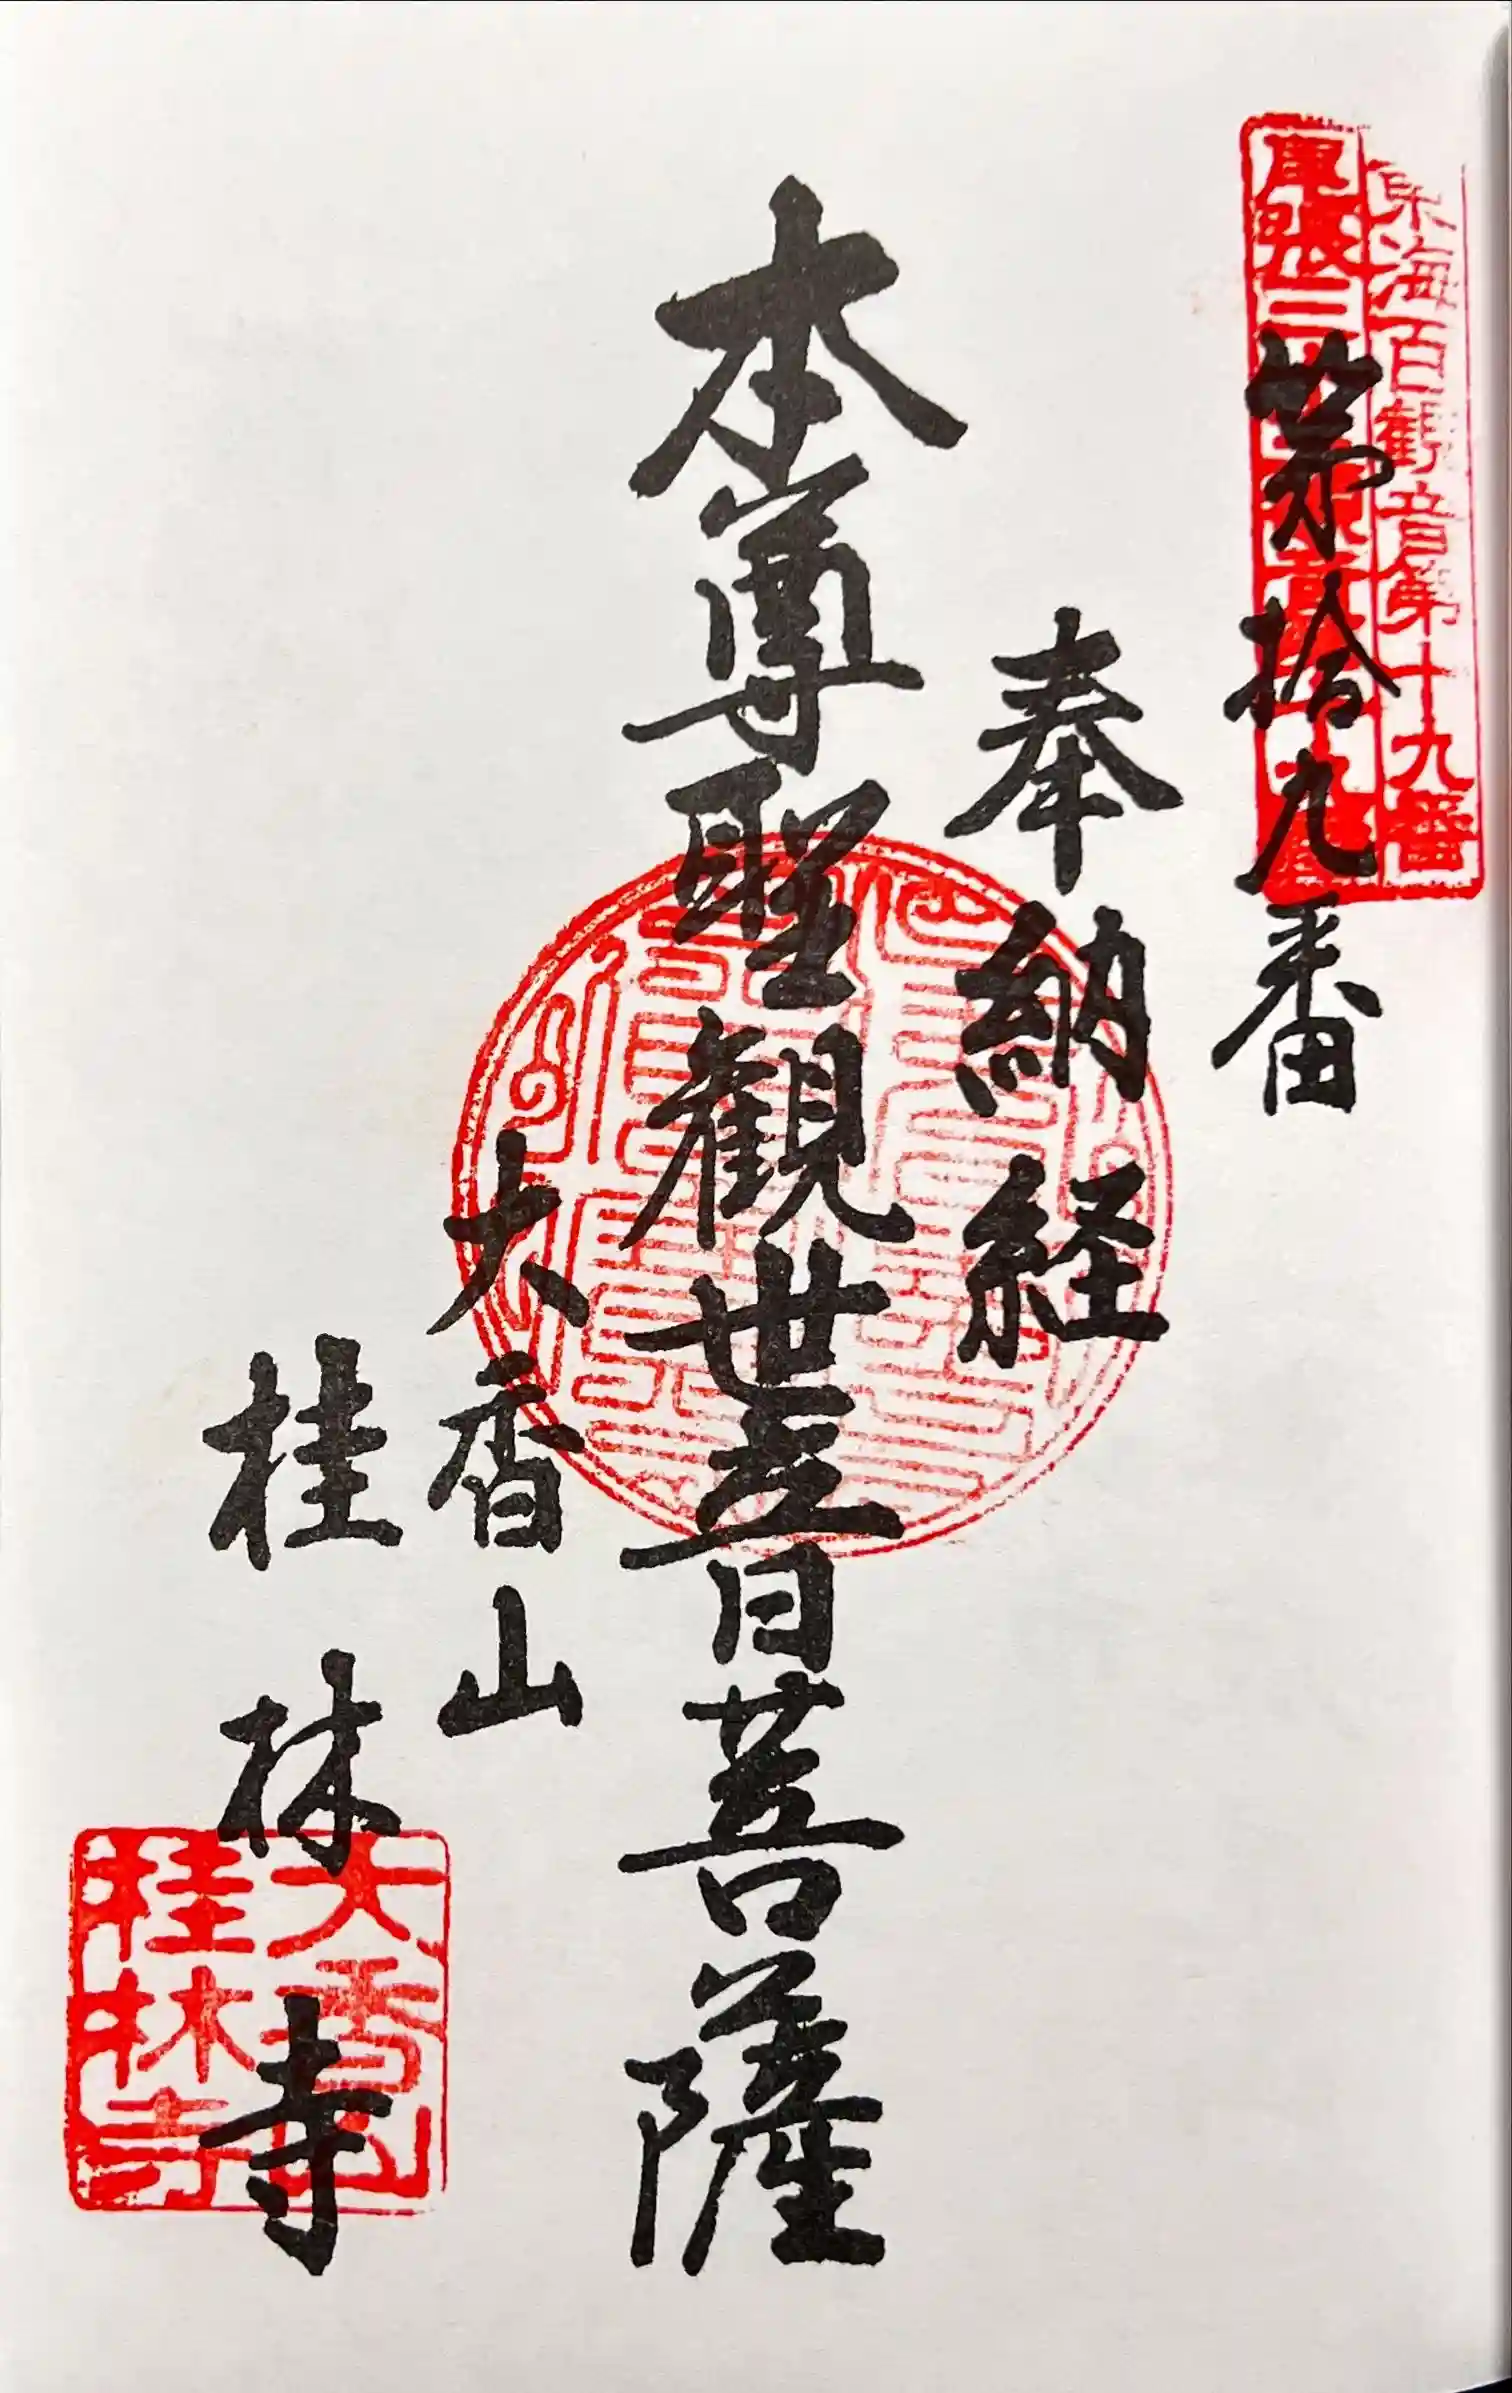 東海百観音第十九番
尾張三十三観音第十九番
第拾九番
奉納経
本尊聖観世音菩薩
大香山
桂林寺
大香山
桂林寺